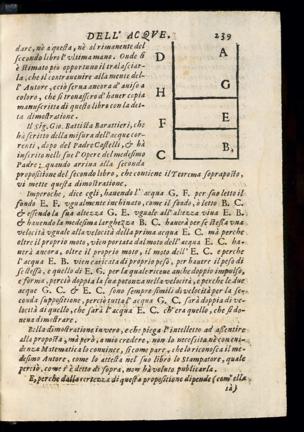 DELL' ACQVE. 239
dare, nè a questa, nè al rimanente del
secondo libro l'vltima mano. Onde si
è stimato più opportuno il tralasciar-
la, che il contrauenire alla mente del-
l'Autore, e ciò serua ancora d'auiso a
coloro, che si trouassero d'hauer copia
manuscritta di questo libro con la det-
ta dimostratione.
Il Sig. Gio. Battista Barattieri, che
hà scritto della misura dell'acque cor-
renti, dopo del Padre Castelli, & hà
inserito nelle sue l'Opere del medesimo
Padre; quando arriua alla seconda
D A
H G
F E
C B,
propositione del secondo libro, che contiene il Teorema soprapposto,
vi mette questa dimostratione.
Imperoche, dice egli, hauendo l'acqua G. F. per suo letto il
fondo E. F. vgualmente inchinato, come il fondo, ò letto B. C.
& essendo la sua altezza G. E. vguale all'altezza viua E. B.,
& hauendo la medesima larghezza B. C. hauerà per se stessa vna
velocità vguale alla velocità della prima acqua E. C. mà perche
oltre il proprio moto, vien portata dal moto dell'acqua E. C. ha-
uerà ancora, oltre il proprio moto, il moto dell' E. C. e perche
l'acqua E. B. vien caricata di proprio peso, per hauere il peso di
se stesso, e quello di E. G. per la qual riceue anche doppio impulso,
e forma, perciò doppia la sua potenza nella velocità, e perche le due
acque G. C. & E. C. sono sempre simili di velocità per la se-
conda suppositione, perciò tutta l'acqua G. C. sarà doppia di ve-
locità di quello, che sarà l'acqua E. C. ch'era quello, che si do-
ueua dimostrare.
Bella dimostratione in vero, e che piega l'intelletto ad assentire
alla proposta, mà però, a mio credere, non lo necessita, nè con eui-
denza Matematica lo conuince, si come pare, che lo riconosca il me-
desimo Autore, come lo attesta nel suo libro lo Stampatore, quale
perciò, come s'è detto di sopra, non hà voluto publicarla.
E, perche dalla certezza di questa propositione dipende (com'ella
sia)